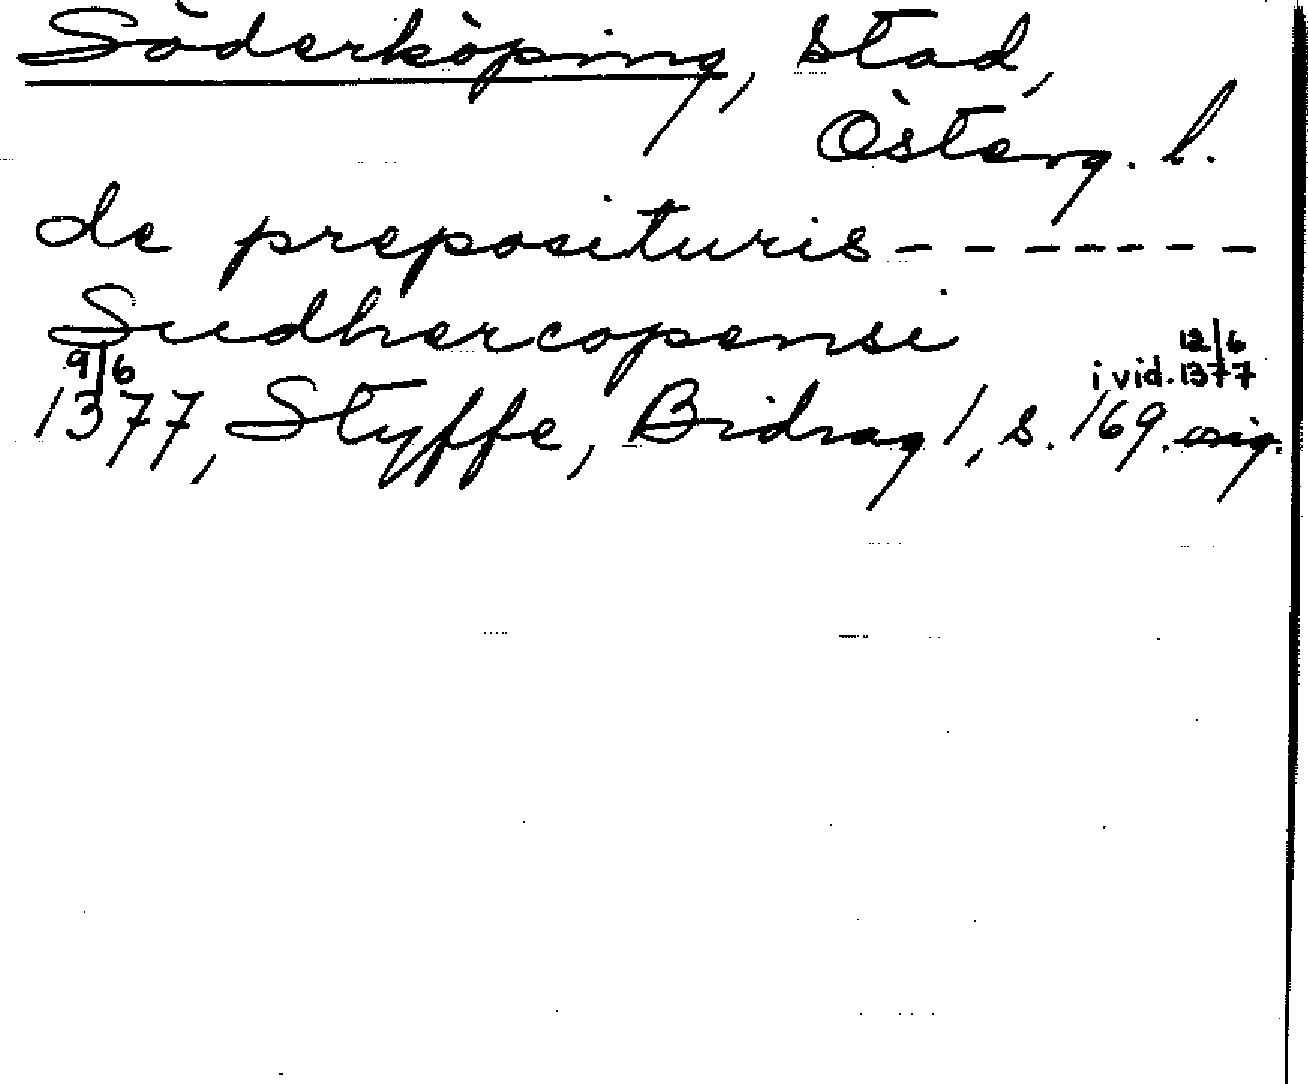 Söderköping, stad,
Österg. l.
de preposituris - - - - - - -
Sudhercopensi
9/6 12/6
i vid. 1377
1377, Styffe, Bidrag 1, s. 169. orig.